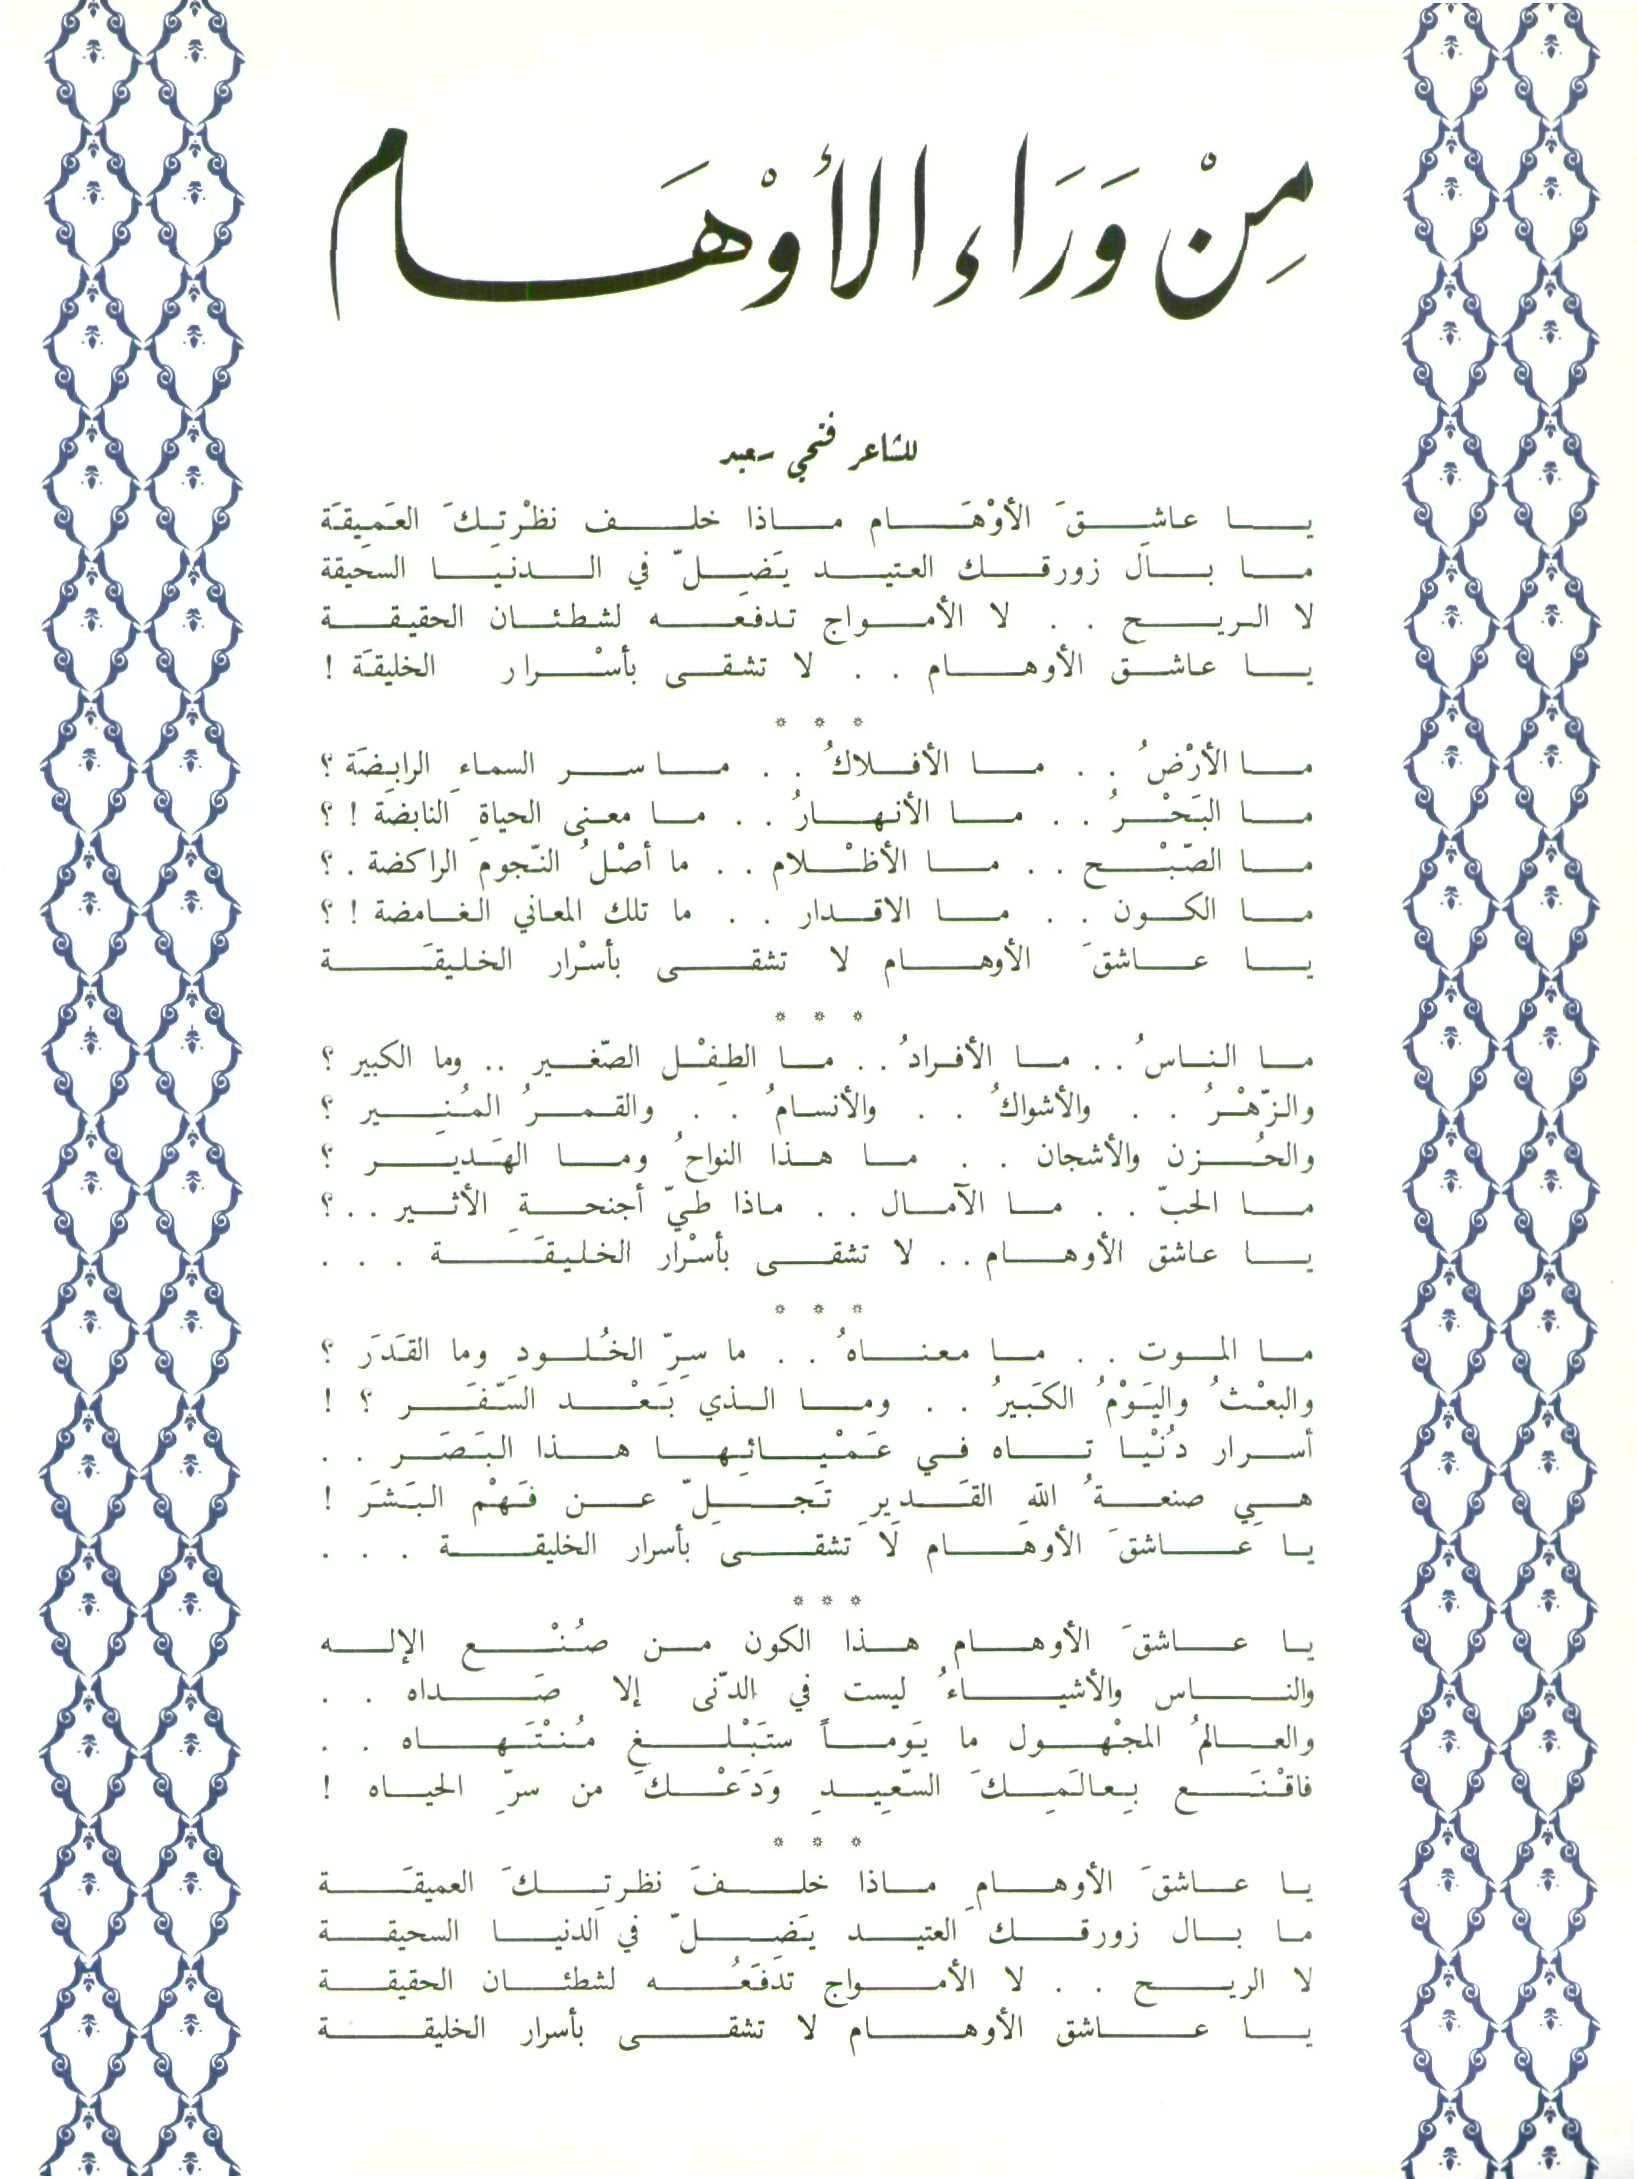 مِنْ وَرَاء الأوْهَام
للشاعر فتحي سعيد
يا عاشِقَ الأوْهَام ماذا خلف نظْرتِكَ العَمِيقَة
ما بال زورقك العتيد يَضِلّ في الدنيا السحيقة
لا الريح . . لا الأمواج تدفعه لشطئان الحقيقة
يا عاشق الأوهام . . لا تشقى بأسْرار الخليقَة !
* * *
ما الأرْضُ . . ما الأفلاكُ . . ما سر السماءِ الرابِضَة ؟
ما البَحْرُ . . ما الأنهارُ . . ما معنى الحياةِ النابضَة ! ؟
ما الصّبْح . . ما الأظْلام . . ما أصْلُ النّجوم الراكضة . ؟
ما الكون . . ما الاقدار . . ما تلك المعاني الغامضة ! ؟
يا عاشقَ الأوهام لا تشقى بأسْرار الخليقَة
* * *
ما الناسُ . . ما الأفرادُ . . ما الطِفْل الصّغير .. وما الكبير ؟
والزّهْرُ . . والأشواكُ . . والأنسامُ . . والقمرُ المُنِير ؟
والحُزن والأشجان . . ما هذا النواحُ وما الهَدير ؟
ما الحبّ . . ما الآمال . . ماذا طيّ أجنحةِ الأثير . . ؟
يا عاشق الأوهام . . لا تشقى بأسْرار الخليقَة . . .
* * *
ما الموت . . ما معناهُ . . ما سِرّ الخُلودِ وما القَدَرَ ؟
والبعْثُ واليَوْمُ الكَبَيرُ . . وما الذي بَعْد السّفَر ؟ !
أسرار دُنْيا تاه في عَمْيائِها هذا البَصَر . .
هي صنعةُ اللهِ القَدِيرِ تَجِلّ عن فَهْم البَشَر !
يا عاشقَ الأوهَام لا تشقى بأسرار الخليقة . . .
* * *
يا عاشقَ الأوهام هذا الكون من صُنْع الإله
والناس والأشياءُ ليست في الدّنى إلا صَداه . .
والعالمُ المجْهول ما يَوماً ستَبْلغ مُنْتَهاه . .
فاقْنَع بِعالَمِكَ السّعِيدِ وَدَعْكَ من سرّ الحياه !
* * *
يا عاشقَ الأوهامِ ماذا خلفَ نظرتِكَ العميقَة
ما بال زورقك العتيد يَضِلّ في الدنيا السحيقة
لا الريح . . لا الأمواج تدفَعُه لشطئان الحقيقة
يا عاشق الأوهام لا تشقى بأسرار الخليقة